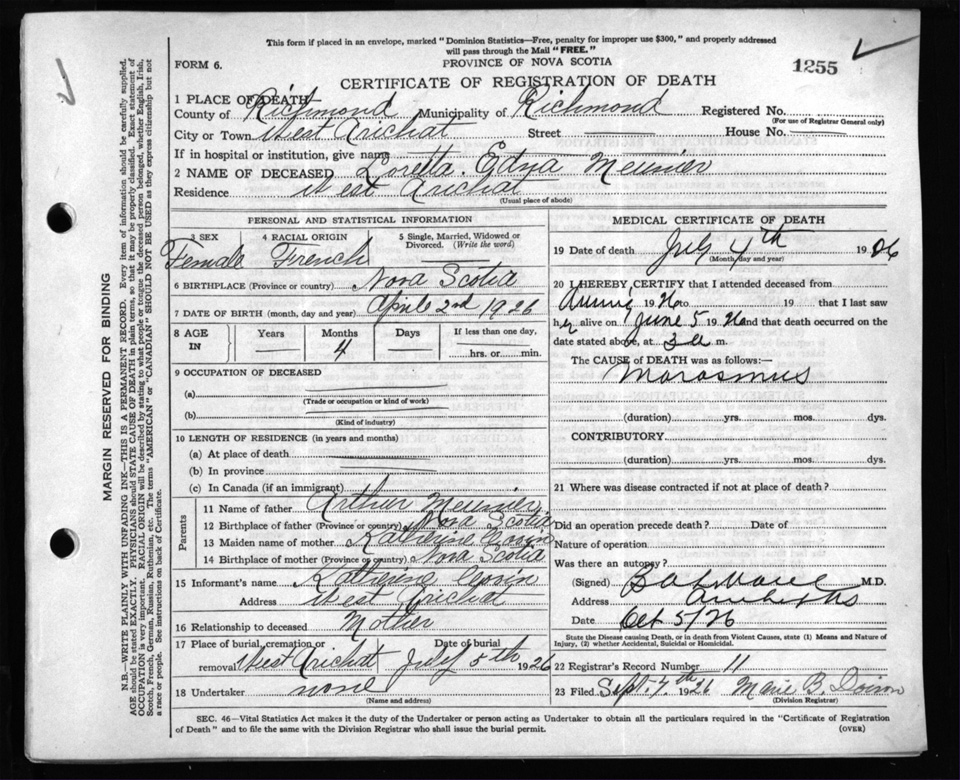 This form if placed in an envelope, marked "Dominion Statistics—Free, penalty for improper use $300," and properly addressed
will pass through the Mail "FREE."
FORM 6.
PROVINCE OF NOVA SCOTIA
CERTIFICATE OF REGISTRATION OF DEATH
1255
1 PLACE OF DEATH
County of Richmond Municipality of Richmond Registered No.
(For use of Registrar General only)
City or Town West Arichat Street House No.
If in hospital or institution, give name
2 NAME OF DECEASED Loretta Edna Meunier
Residence West Arichat
(Usual place of abode)
PERSONAL AND STATISTICAL INFORMATION
3 SEX 4 RACIAL ORIGIN 5 Single, Married, Widowed or
Divorced. (Write the word)
Female French
6 BIRTHPLACE (Province or country) Nova Scotia
7 DATE OF BIRTH (month, day and year) April 2nd 1926
8 AGE IN Years Months Days If less than one day,
4 hrs. or min.
9 OCCUPATION OF DECEASED
(a)
(Trade or occupation or kind of work)
(b)
(Kind of industry)
10 LENGTH OF RESIDENCE (in years and months)
(a) At place of death
(b) In province
(c) In Canada (if an immigrant)
Parents
11 Name of father Arthur Meunier
12 Birthplace of father (Province or country) Nova Scotia
13 Maiden name of mother
14 Birthplace of mother (Province or country) Nova Scotia
15 Informant's name Katherine
Address West Arichat
16 Relationship to deceased Mother
17 Place of burial, cremation or Date of burial
removal West Arichat July 5th 1926
18 Undertaker none
(Name and address)
MEDICAL CERTIFICATE OF DEATH
19 Date of death July 4th 1926
(Month, day and year)
20 I HEREBY CERTIFY that I attended deceased from
1926 to 19 that I last saw
her alive on June 5 1926 and that death occurred on the
date stated above, at m.
The CAUSE of DEATH was as follows:—
Marasmus
(duration) yrs. mos. dys.
CONTRIBUTORY
(duration) yrs. mos. dys.
21 Where was disease contracted if not at place of death?
Did an operation precede death? Date of
Nature of operation
Was there an autopsy?
(Signed) M.D.
Address
Date Oct 5/26
State the Disease causing Death, or in death from Violent Causes, state (1) Means and Nature of
Injury, (2) whether Accidental, Suicidal or Homicidal.
22 Registrar's Record Number 11
23 Filed Sept. 7th 1926 Marie B. Doiron
(Division Registrar)
SEC. 46—Vital Statistics Act makes it the duty of the Undertaker or person acting as Undertaker to obtain all the particulars required in the "Certificate of Registration
of Death" and to file the same with the Division Registrar who shall issue the burial permit.
(OVER)
MARGIN RESERVED FOR BINDING
N.B.—WRITE PLAINLY WITH UNFADING INK—THIS IS A PERMANENT RECORD. Every item of information should be carefully supplied.
AGE should be stated EXACTLY. PHYSICIANS should STATE CAUSE OF DEATH in plain terms, so that it may be properly classified. Exact statement of
OCCUPATION is very important. RACIAL ORIGIN will be described by stating to what people or tongue the deceased person belonged, whether English, Irish,
Scotch, French, German, Russian, Ruthenian, etc. The terms "AMERICAN" or "CANADIAN" SHOULD NOT BE USED as they express citizenship but not
a race or people. See instructions on back of Certificate.